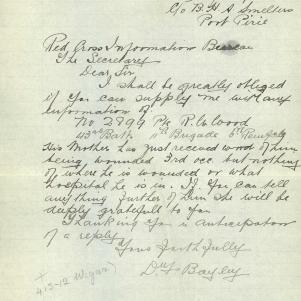 C/o B.H.A Smelters
Port Pirie
Red Cross Information Bureau
The Secretary
Dear Sir
I shall be greatly obliged
if you can supply me with any
information of
No 2899 Pte R. Wood
43rd Batt 11th Brigade
His Mother has just received word of him
being wounded 3rd occ. but nothing
of where he is wounded or what
hospital he is in. If you can tell
anything further of him she will be
deeply gratefull to you
Thanking you in anticipation
of a reply
Yours faithfully
Bayley